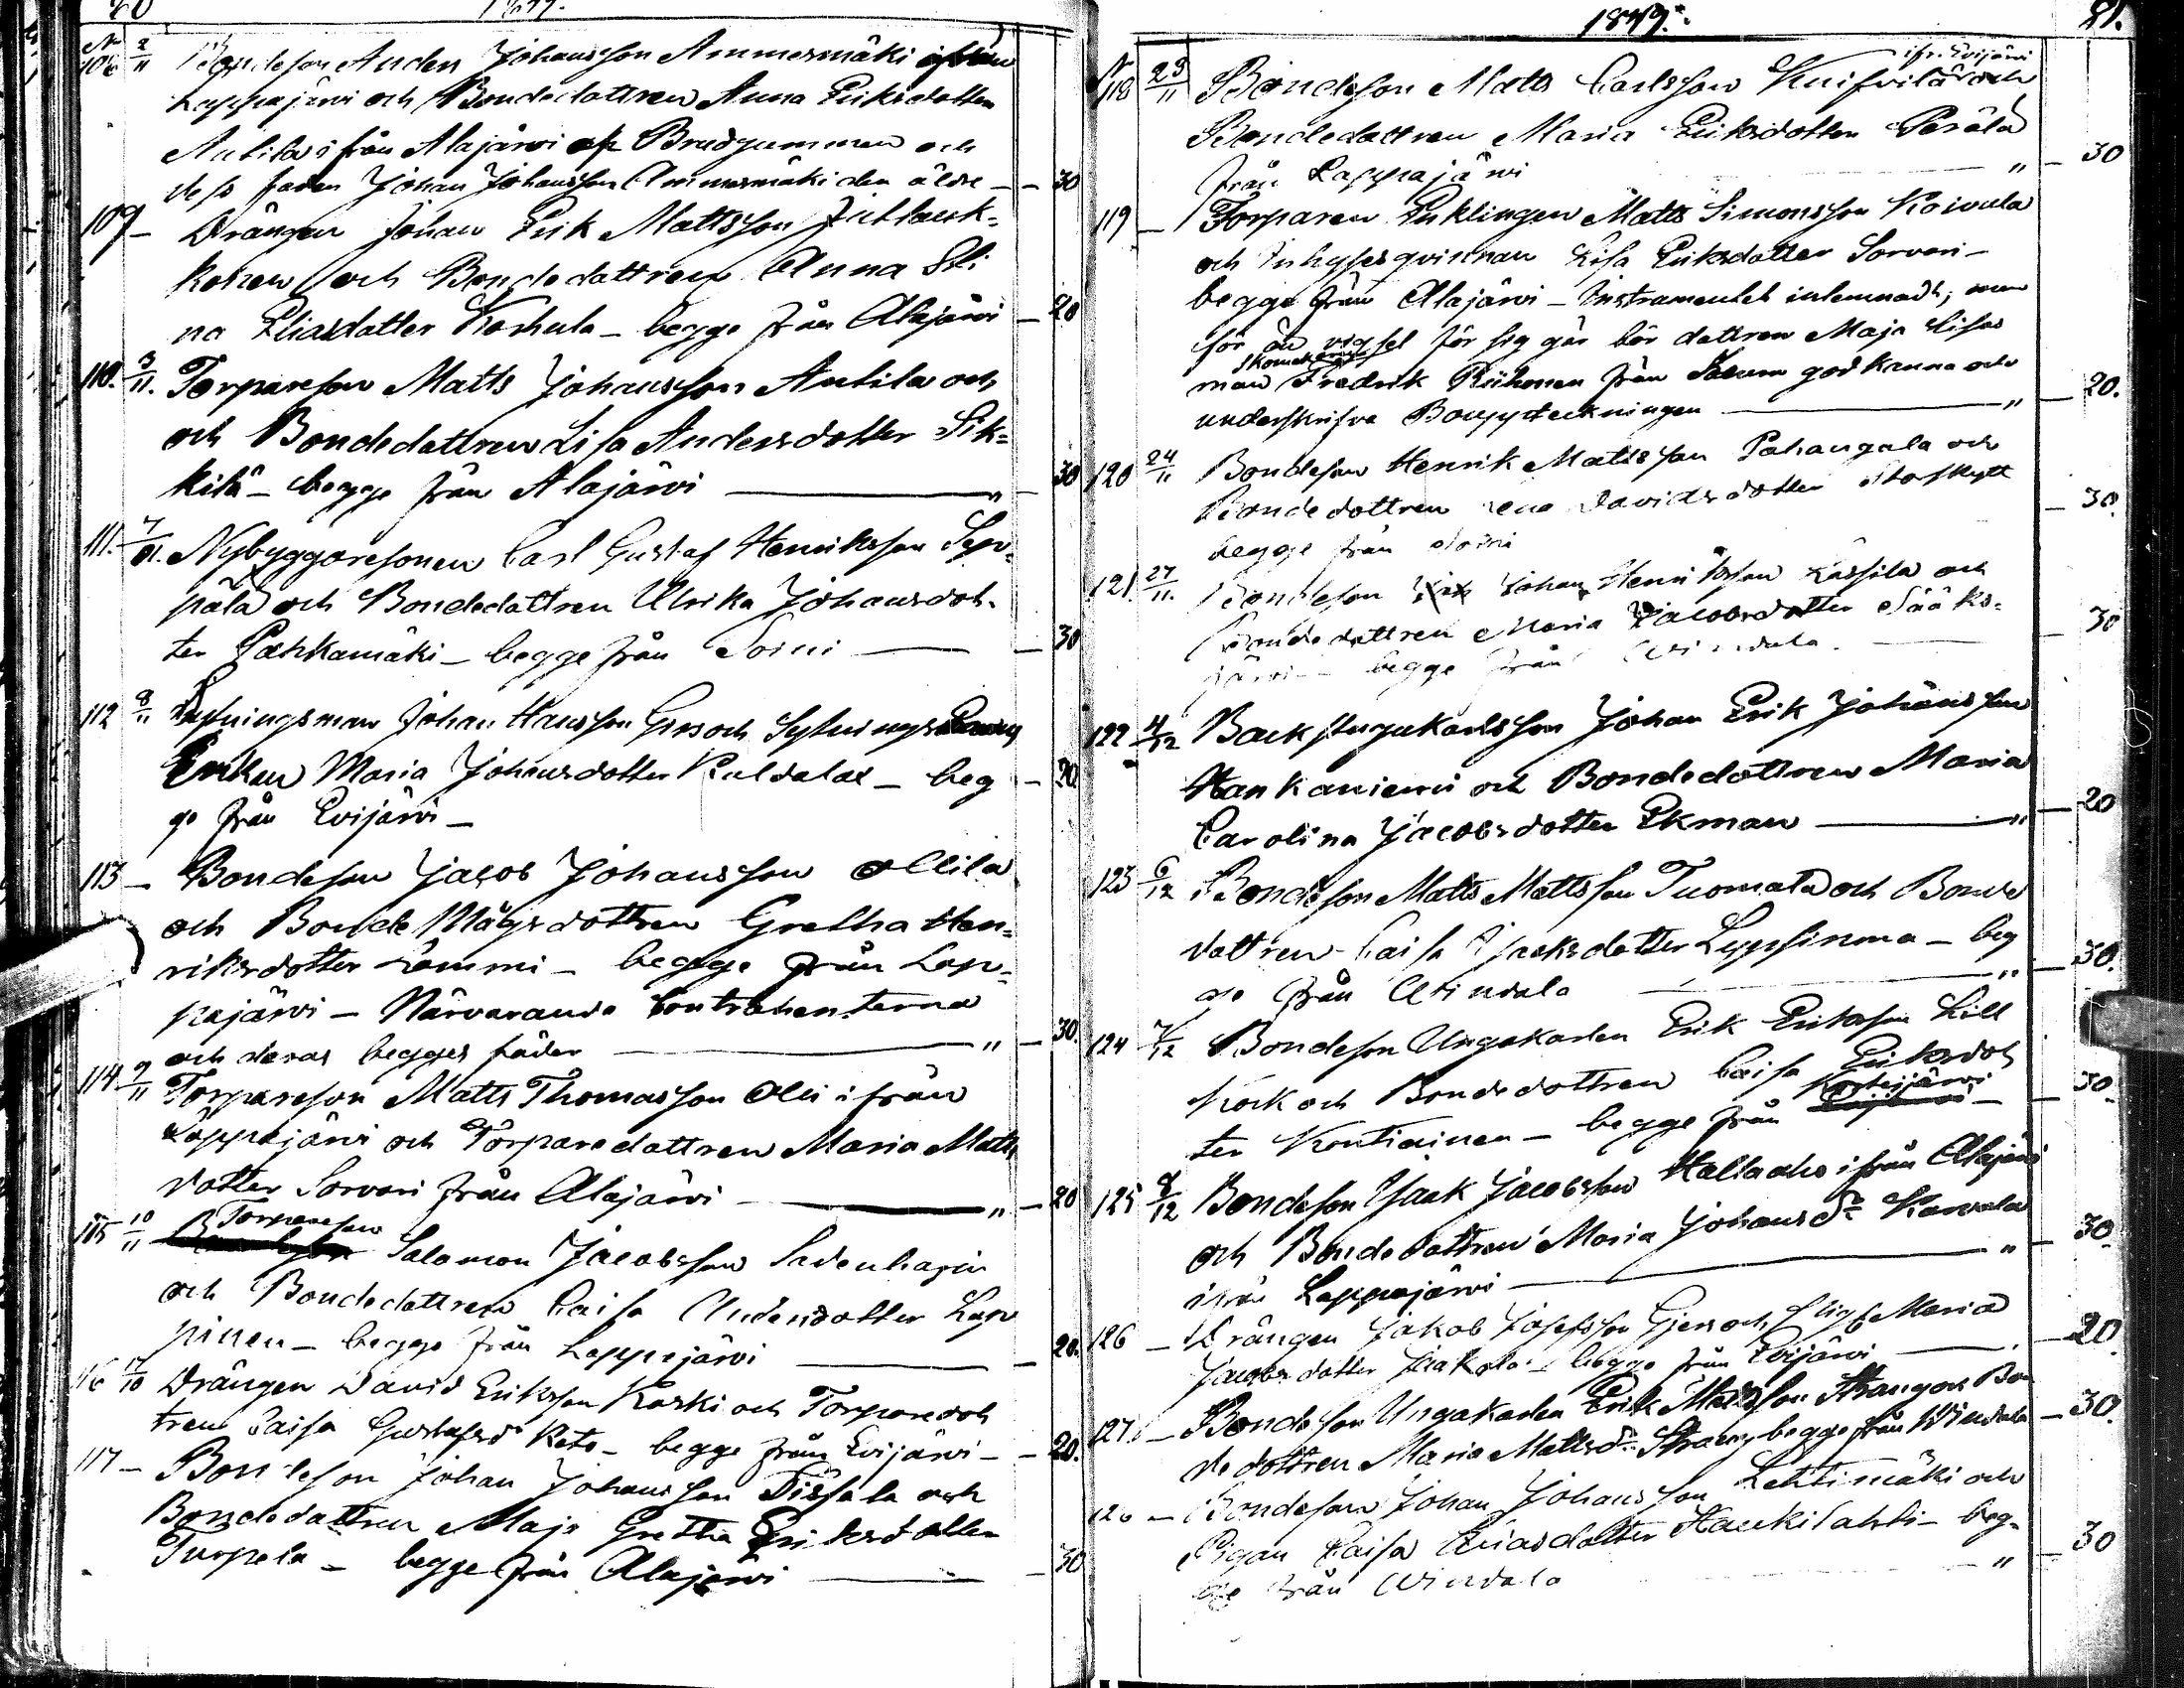 80
1849.
No 108 2/11 Bondeson Anders Johansson Ammesmäki ifrån
Lappajärvi och Bondedottren Anna Eriksdotter
Antila ifrån Alajärvi af Brudgummen och
dess fader Johan Johansson Ammesmäki den äldre — 30
109 — Drängen Johan Erik Mattsson
koinen och Bondedottren Anna Sti
na Eliasdotter Koskula — begge från Alajärvi — 20
110. 3/11. Torpareson Matts Johansson Antila och
och Bondedottren Lisa Andersdotter Sik-
kilä — begge från Alajärvi — " — 30
111. 7/11. Nybyggaresonen Carl Gustaf Henriksson Sep-
pälä och Bondedottren Ulrika Johansdot-
ter Pahkamäki — begge från Soini — 30
112 8/11 Sytningsman Johan Hansson och Sytnings
Enkan Maria Johansdotter — beg — 20
ge från Evijärvi —
113 — Bondeson Jacob Johansson Ollila
och Bonde Mågsdottren Gretha Hen-
riksdotter Lammi — begge från Lap-
pajärvi — Närvarande Contrahenterna
och deras begges fäder — " — 30.
114 9/11 Torpareson Matts Thomasson Olli ifrån
Lappajärvi och Torparedottren Maria Matts
dotter Sorvari från Alajärvi — " — 20
115 10/11 Torpareson Salomon Jacobsson Sadenharju
och Bondedottren Caisa Andersdotter Lap
pinen — begge från Lappajärvi — 20.
116 Drängen David Eriksson Koski och Torparedot
tren Caisa Gustafsd. Keto — begge från Evijärvi — 20.
117 — Bondeson Johan Johansson och
Bondedottren Maja Gretha Eriksdotter
Turpela — begge från Alajärvi — 30
1849.
81.
ifr. Evijärvi
No 118 23/11 Bondeson Matts Carlsson Knifvilä och
Bondedottren Maria Eriksdotter Perälä
från Lappajärvi — " — 30
119 — Torparen Enklingen Matts Simonsson Koivula
och Inhysesqvinnan Lisa Eriksdotter Sorvari —
begge från Alajärvi — Instrumentet inlemnadt, men
för än vigsel för sig går bör dottren Maja Lisas
man Skomakaren Fredrik Riihonen från godkänna och
underskrifva Bouppteckningen — " — 20.
120 24/11 Bondeson Henrik Mattsson Pahangala och
Bondedottren Lena Davidsdotter Storskytt — 30.
begge från Soini
121 27/11. Bondeson Johan Henriksson Kässilä och
Bondedottren Maria Jacobsdotter Sääks-
järvi — begge från Windala. — 30
122 4/12 Backstugukarlsson Johan Erik Johansson
Hankaniemi och Bondedottren Maria
Carolina Jacobsdotter Ekman — " — 20
123 6/12 Bondeson Matts Mattsson Tuomala och Bonde
dottren Caisa Isaksdotter — beg
ge från Windala — " — 30.
124 7/12 Bondeson Ungakarlen Erik Eriksson Lill
kock och Bondedottren Caisa Eriksdot
ter Kontiainen — begge från Kortesjärvi — 30.
125 8/12 Bondeson Isaak Jacobsson Hallaaho ifrån Alajärvi
och Bondedottren Maria Johansdr Karvala
ifrån Lappajärvi — " — 30.
126 — Drängen Jakob Josefsson och Maria
Jacobsdotter — begge från Evijärvi — 20
127. — Bondeson Ungakarlen Erik Mattsson Strang och Bon
dedottren Maria Mattsdr Strang begge från Windala — 30.
128 — Bondeson Johan Johansson Lehtimäki och
Pigan Caisa Eliasdotter Haukilahti — beg-
ge från Windala — " — 30